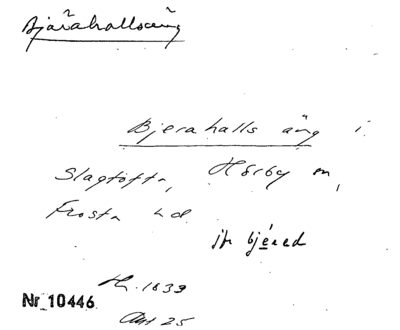 Bjärahallsäng
Bjerahalls äng i
Slagtofta, Hörby sn,
Frosta hd
jfr bjered
Hl. 1839
Nr 10446
Akt 25